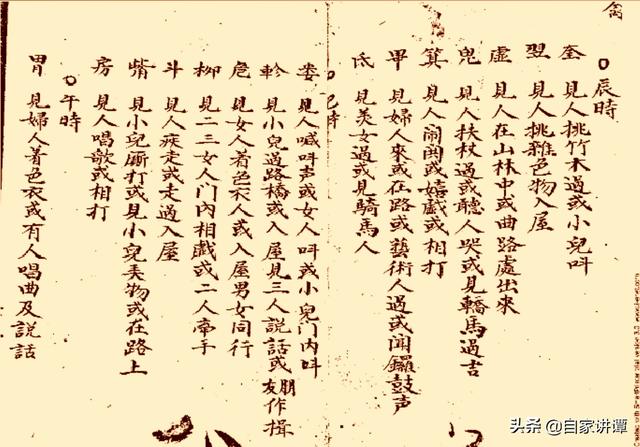 禽
○辰時
奎 見人挑竹木過或小兒叫
翌 見人挑雜色物入屋
虛 見人在山林中或曲路處出來
鬼 見人扶杖過或聽人哭或見轎馬過吉
箕 見人鬧鬨或嬉戲或相打
畢 見婦人來或在路或藝術人過或聞鑼鼓声
氐 見美女過或見騎馬人
○巳時
娄 見人喊叫声或女人叫或小兒門內叫
軫 見小兒過路橋或入屋見三人說話或朋友作揖
危 見女人着色衣人或入屋男女同行
柳 見二三女人门內相戲或二人牽手
斗 見人疾走或走過入屋
觜 見小兒廝打或見小兒美物或在路上
房 見人唱歌或相打
○午時
胃 見婦人着色衣或有人唱曲及說話
头条 @自家讲谭